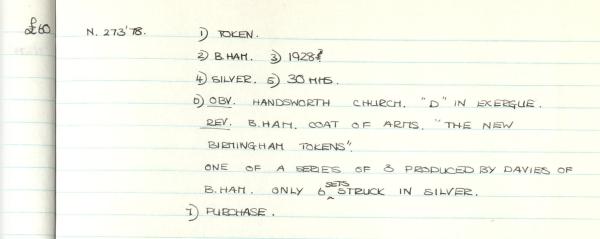 £60 N. 273'78. 1) TOKEN.
2) B.HAM. 3) 1928?
4) SILVER. 5) 30 MMS.
6) OBV. HANDSWORTH CHURCH. "D" IN EXERGUE.
REV. B.HAM. COAT OF ARMS. "THE NEW
BIRMINGHAM TOKENS".
ONE OF A SERIES OF 8 PRODUCED BY DAVIES OF
B.HAM. ONLY 6 SETS STRUCK IN SILVER.
7) PURCHASE.